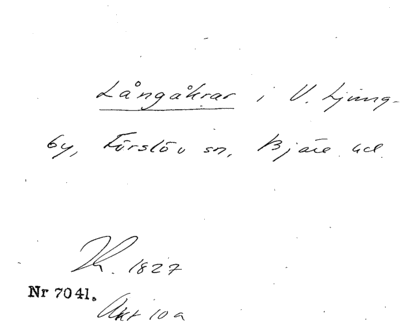 Långåkrar i V. Ljung-
by, Förslöv sn, Bjäre hd.
1827
Nr 7041.
Akt 10a